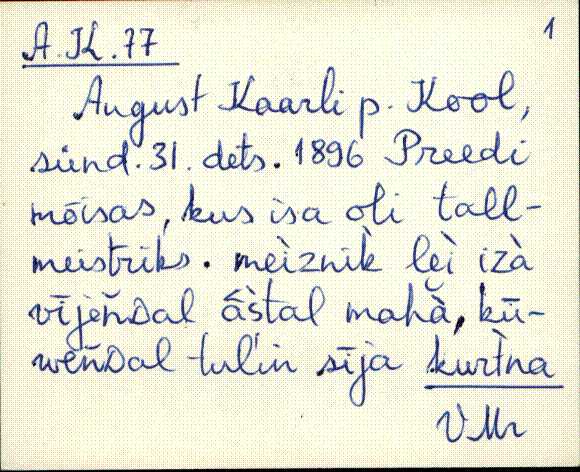 A.K.77
1
August Kaarli p. Kool,
sünd. 31. dets. 1896 Preedi
mõisas, kus isa oli tall-
meistriks. mèiznìk lèì izà
vījeňᴅal âštal mahà̬, kū-
weňᴅal tul'in sīja kurt̀na
VMr